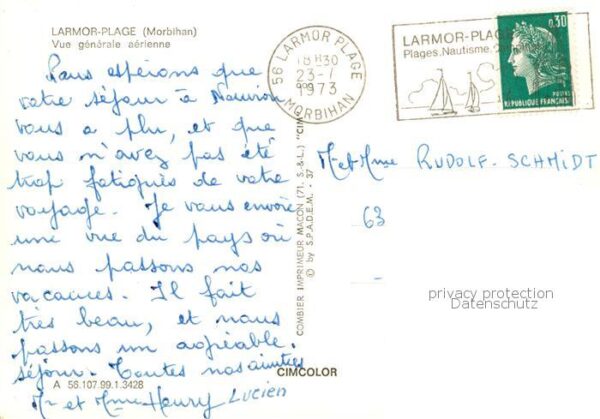 LARMOR-PLAGE (Morbihan)
Vue générale aérienne
Nous espérons que
votre séjour à
vous a plu, et que
vous n'avez pas été
trop fatigués de votre
voyage. Je vous envoie
une vue du pays où
nous passons nos
vacances. Il fait
très beau, et nous
passons un agréable
séjour. Toutes nos amitiés
Mr et Mme Henry Lucien
A 56.107.99.1.3428
CIMCOLOR
COMBIER IMPRIMEUR MACON (71. S.-&-L.) "CIM"
© by S.P.A.D.E.M. - 37
56 LARMOR PLAGE
18H30
23-7
1973
MORBIHAN
LARMOR-PLAGE
Plages, Nautisme,
0,30
POSTES
REPUBLIQUE FRANÇAISE
Mr et Mme RUDOLF-SCHMIDT
63
privacy protection
Datenschutz